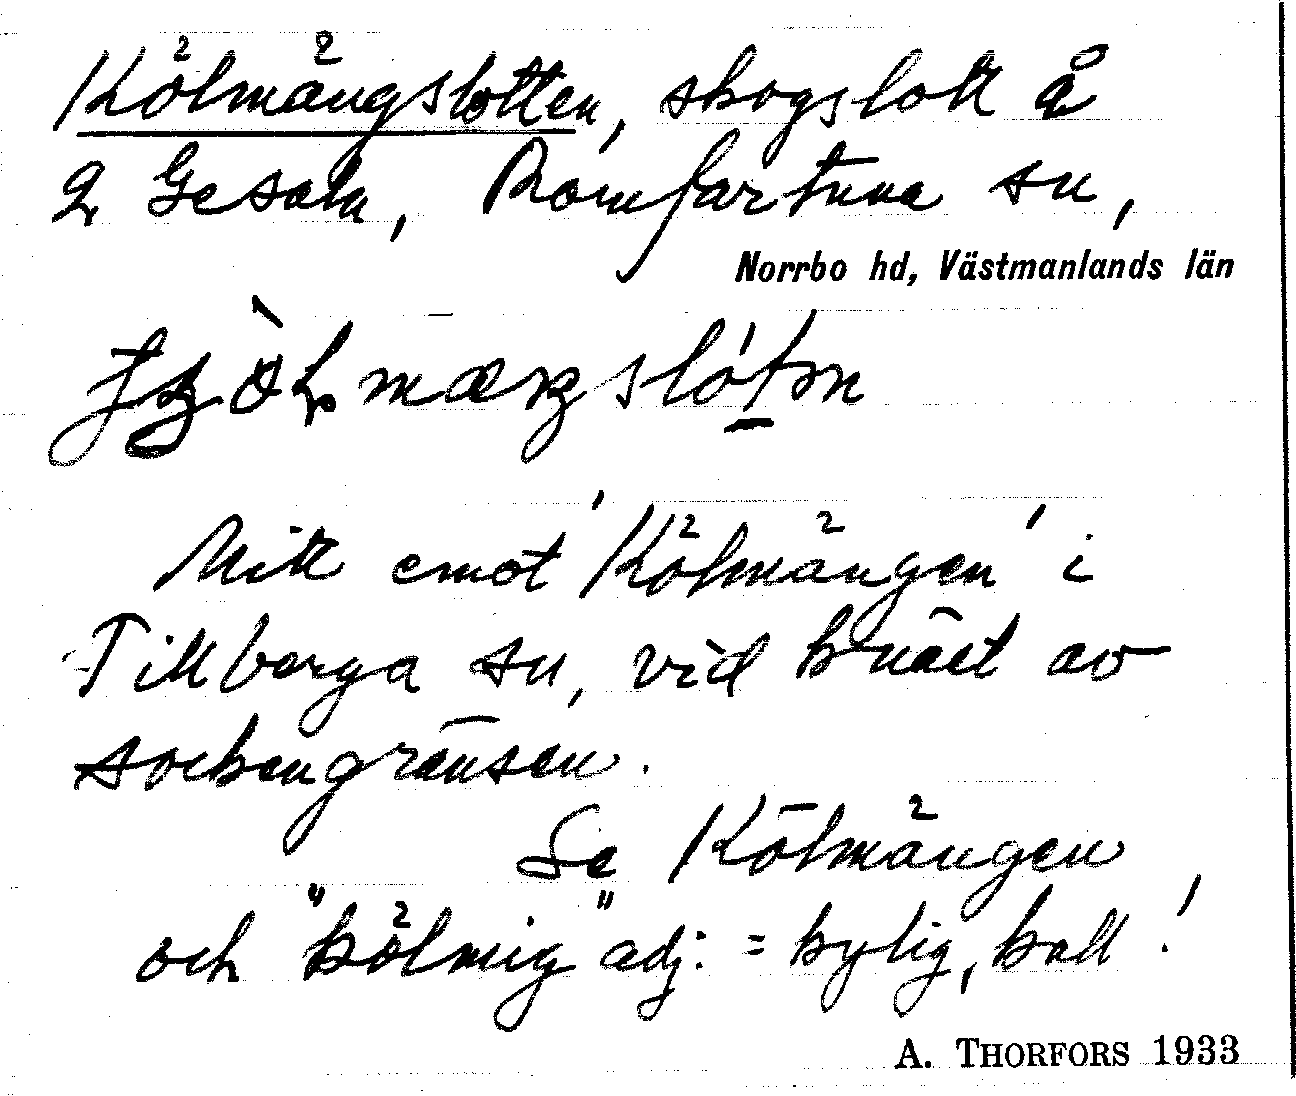 Kölmängslotten, skogslott å
2 Gesala, Romfartuna sn,
Norrbo hd, Västmanlands län
Mitt emot 'Kölmängen' i
Tillberga sn, vid knäet av
sockengränsen.
Se Kölmängen
och "kölmig" adj: = kylig, kall!
A. THORFORS 1933